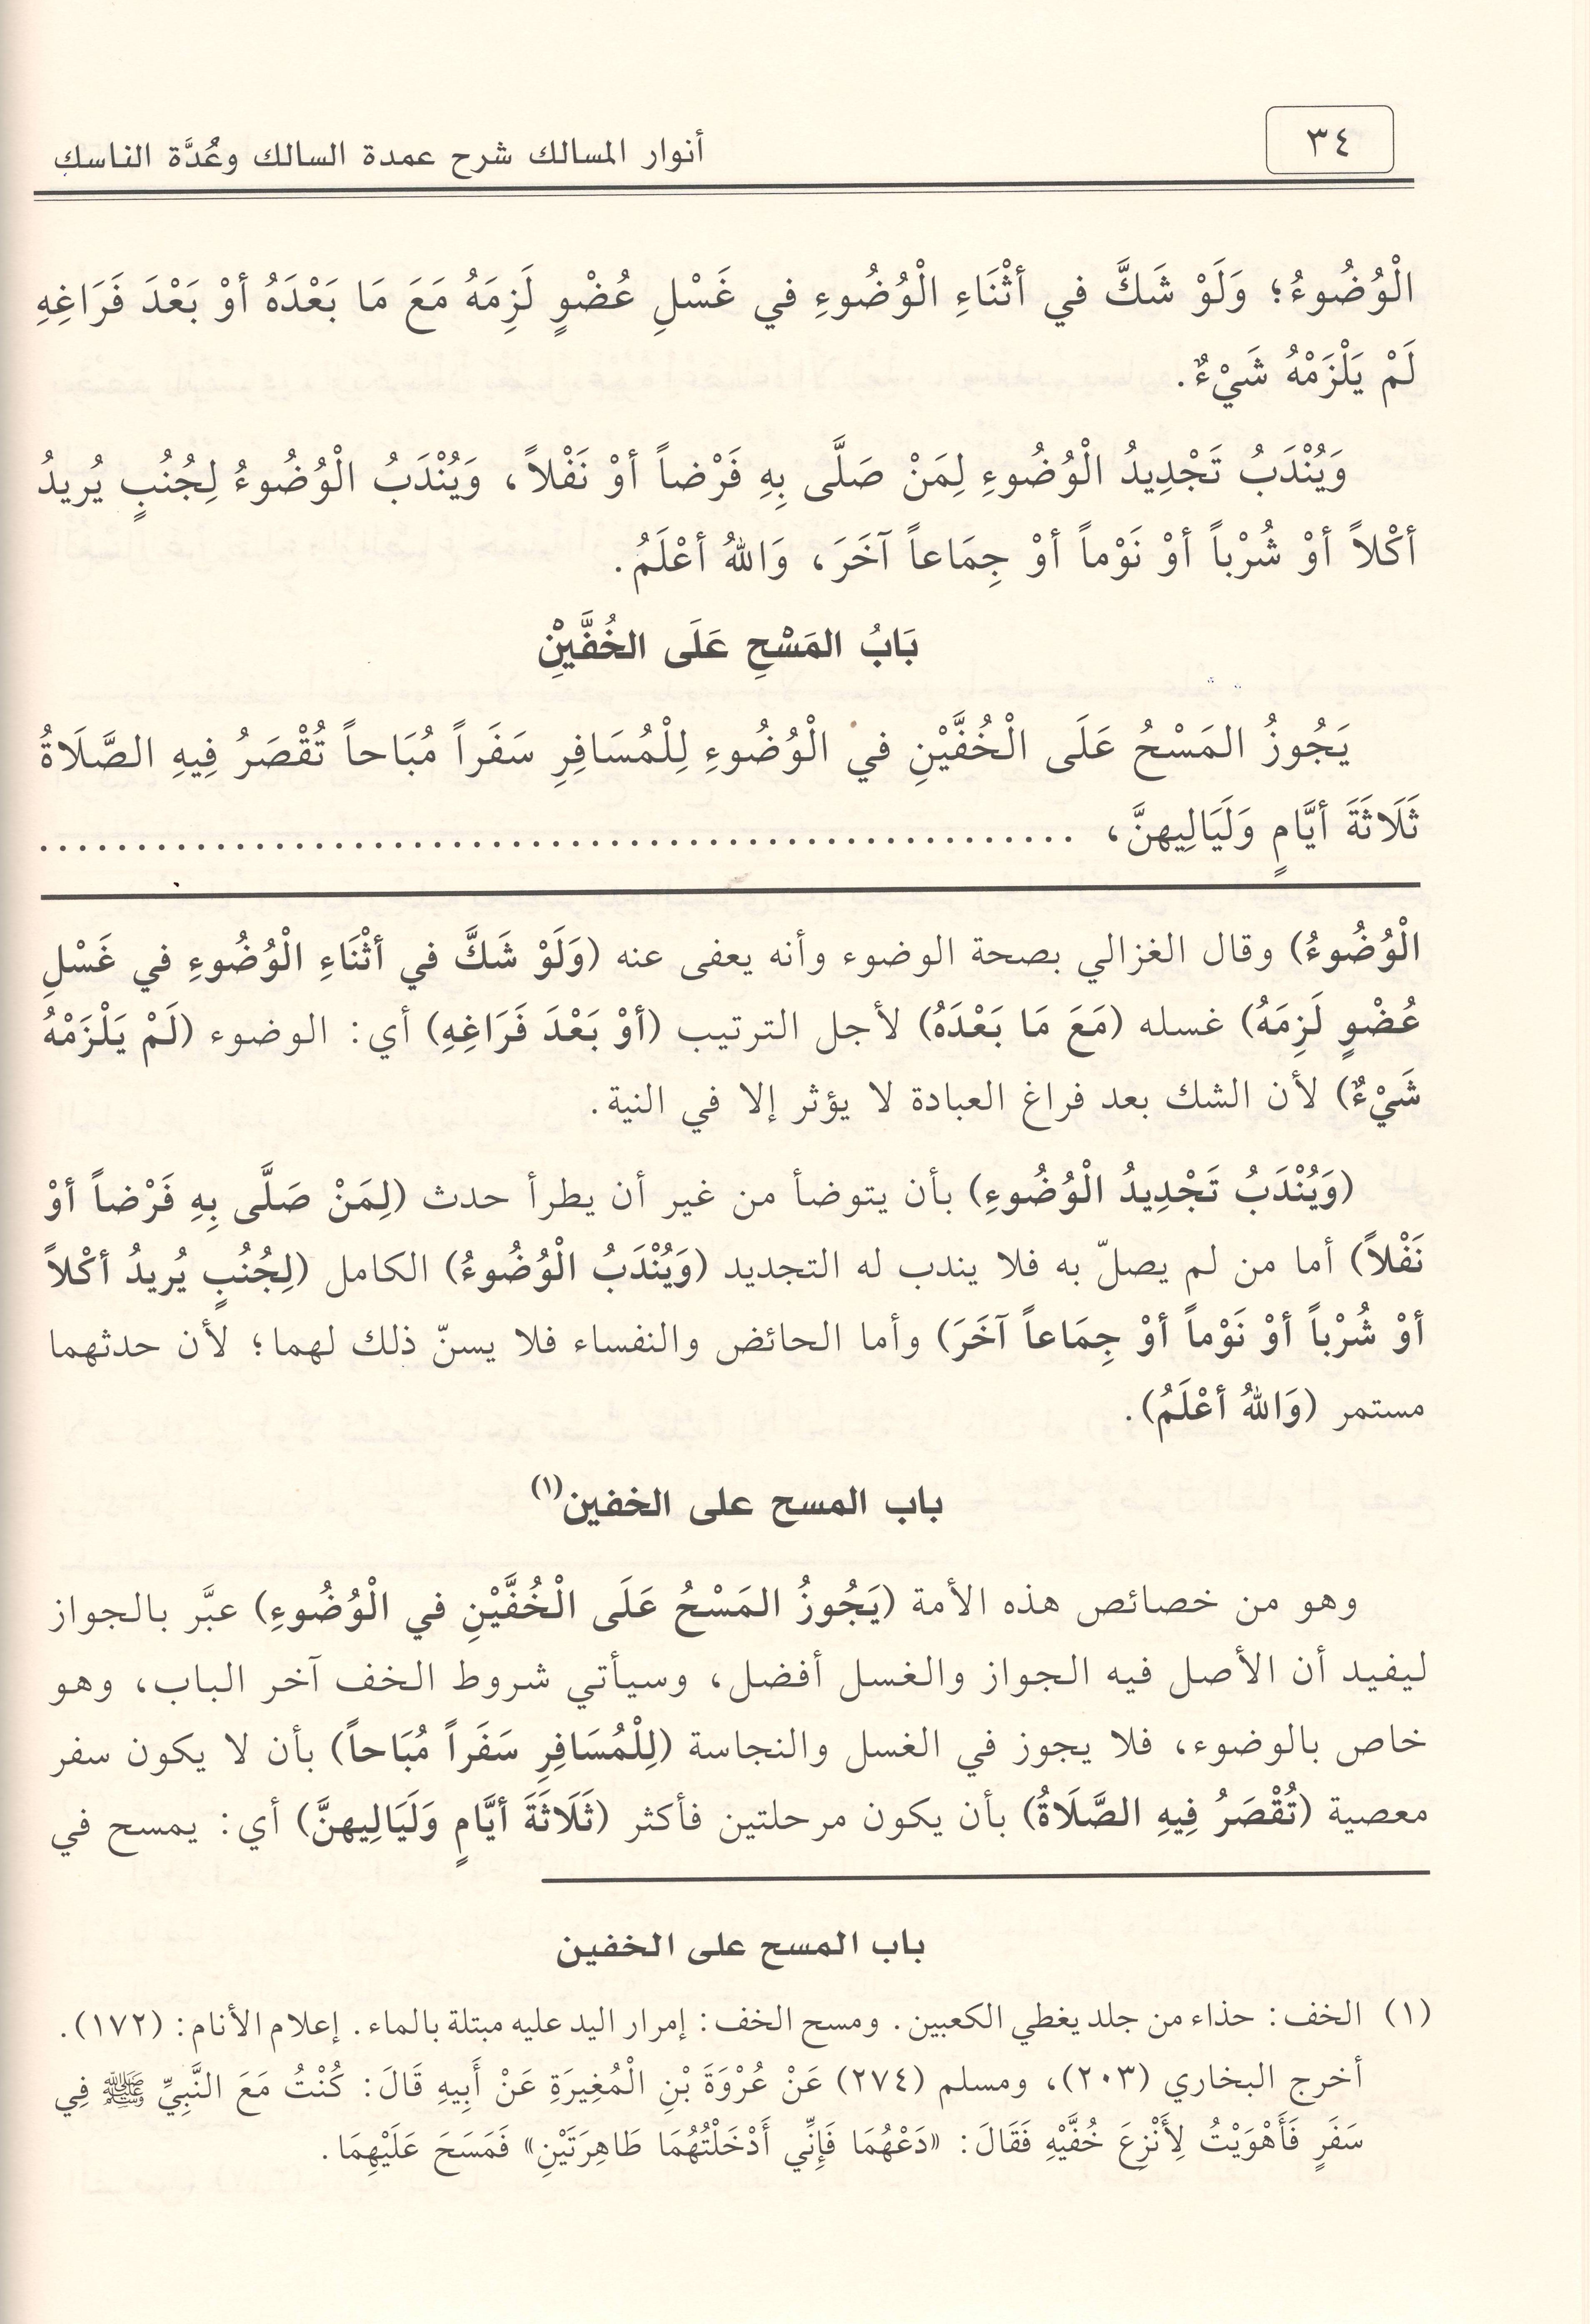 ٣٤
أنوار المسالك شرح عمدة السالك وعُدَّة الناسك
الْوُضُوءُ؛ وَلَوْ شَكَّ في أثْنَاءِ الْوُضُوءِ في غَسْلِ عُضْوٍ لَزِمَهُ مَعَ مَا بَعْدَهُ أوْ بَعْدَ فَرَاغِهِ
لَمْ يَلْزَمْهُ شَيْءٌ.
وَيُنْدَبُ تَجْدِيدُ الْوُضُوءِ لِمَنْ صَلَّى بِهِ فَرْضاً أوْ نَفْلاً، وَيُنْدَبُ الْوُضُوءُ لِجُنُبٍ يُريدُ
أكْلاً أوْ شُرْباً أوْ نَوْماً أوْ جِمَاعاً آخَرَ، وَاللهُ أعْلَمُ.
بَابُ المَسْحِ عَلَى الخُفَّيْنِ
يَجُوزُ المَسْحُ عَلَى الْخُفَّيْنِ في الْوُضُوءِ لِلْمُسَافِرِ سَفَراً مُبَاحاً تُقْصَرُ فِيهِ الصَّلَاةُ
ثَلَاثَةَ أيَّامٍ وَلَيَالِيهنَّ، ........................................................
الْوُضُوءُ) وقال الغزالي بصحة الوضوء وأنه يعفى عنه (وَلَوْ شَكَّ في أثْنَاءِ الْوُضُوءِ في غَسْلِ
عُضْوٍ لَزِمَهُ) غسله (مَعَ مَا بَعْدَهُ) لأجل الترتيب (أوْ بَعْدَ فَرَاغِهِ) أي: الوضوء (لَمْ يَلْزَمْهُ
شَيْءٌ) لأن الشك بعد فراغ العبادة لا يؤثر إلا في النية.
(وَيُنْدَبُ تَجْدِيدُ الْوُضُوءِ) بأن يتوضأ من غير أن يطرأ حدث (لِمَنْ صَلَّى بِهِ فَرْضاً أوْ
نَفْلاً) أما من لم يصلّ به فلا يندب له التجديد (وَيُنْدَبُ الْوُضُوءُ) الكامل (لِجُنُبٍ يُريدُ أكْلاً
أوْ شُرْباً أوْ نَوْماً أوْ جِمَاعاً آخَرَ) وأما الحائض والنفساء فلا يسنّ ذلك لهما؛ لأن حدثهما
مستمر (وَاللهُ أعْلَمُ).
باب المسح على الخفين(١)
وهو من خصائص هذه الأمة (يَجُوزُ المَسْحُ عَلَى الْخُفَّيْنِ في الْوُضُوءِ) عبَّر بالجواز
ليفيد أن الأصل فيه الجواز والغسل أفضل، وسيأتي شروط الخف آخر الباب، وهو
خاص بالوضوء، فلا يجوز في الغسل والنجاسة (لِلْمُسَافِرِ سَفَراً مُبَاحاً) بأن لا يكون سفر
معصية (تُقْصَرُ فِيهِ الصَّلَاةُ) بأن يكون مرحلتين فأكثر (ثَلَاثَةَ أيَّامٍ وَلَيَالِيهنَّ) أي: يمسح في
باب المسح على الخفين
(١) الخف: حذاء من جلد يغطي الكعبين. ومسح الخف: إمرار اليد عليه مبتلة بالماء. إعلام الأنام: (١٧٢).
أخرج البخاري (٢٠٣)، ومسلم (٢٧٤) عَنْ عُرْوَةَ بْنِ الْمُغِيرَةِ عَنْ أَبِيهِ قَالَ: كُنْتُ مَعَ النَّبِيِّ ﷺ فِي
سَفَرٍ فَأَهْوَيْتُ لِأَنْزِعَ خُفَّيْهِ فَقَالَ: «دَعْهُمَا فَإِنِّي أَدْخَلْتُهُمَا طَاهِرَتَيْنِ» فَمَسَحَ عَلَيْهِمَا.